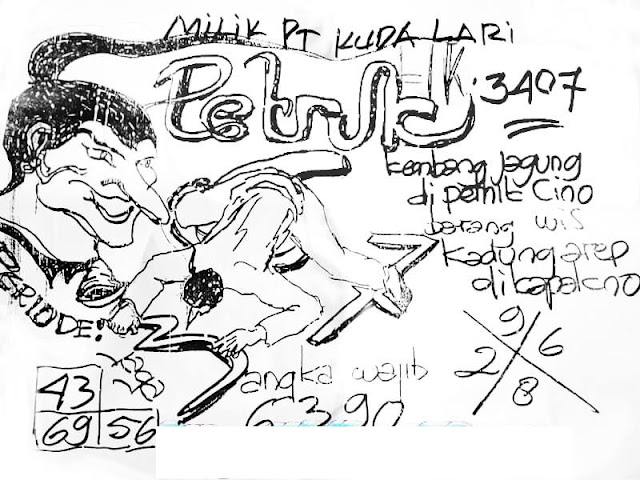 MILIK PT KUDA LARI
Petruk
HK. 3407
kembang jagung
di petik Cino
barang wis
kadung arep
di kapakno
PERIODE:
9
2 6
8
43
69 56
angka wajib
6390